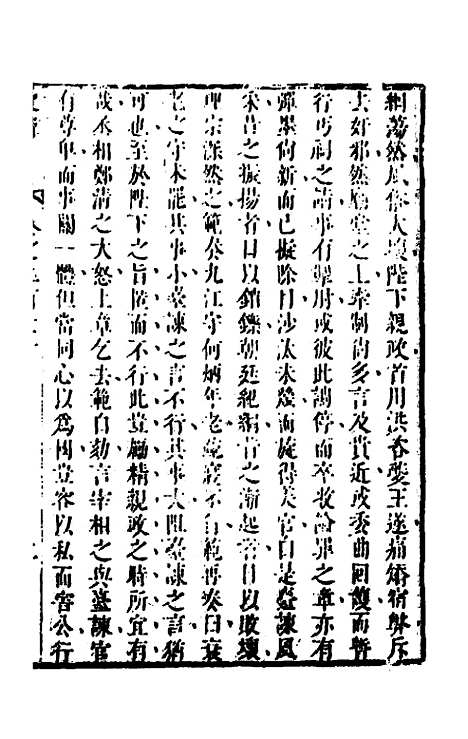 綱蕩然風俗大壞陛下親政首用洪咨夔王遂痛矯宿弊斥
去奸邪然廟堂之上奉制尚多言及貴近或委曲回護而暫
行丐祠之請事有掣肘或彼此調停而卒收論罪之章亦有
彈墨尚新而已擬除目沙汰未幾而旋得美官自是臺諫風
采昔之振揚者日以銷鑠朝廷紀綱昔之漸起者日以敗壞
理宗深然之範奏九江守何炳年老 寡不 範再奏曰衰
老之守未罷其事小臺諫之言不行其事大阻臺諫之言猶
可也至於陛下之旨匿而不行此豈勵精親政之時所宜有
哉丞相鄭清之大怒上章乞去範自劾言宰相之與臺諫官
有尊卑而事關一體但當同心以為國豈容以私而害公行